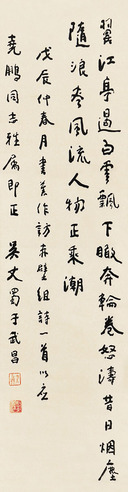 翼江亭邊白雲飄下瞰奔輪卷怒濤昔日烟塵
隨浪去風流人物正乘潮
戊辰仲春月書舊作訪赤壁組詩一首以应
堯鵬同志雅属即正 吴丈蜀于武昌